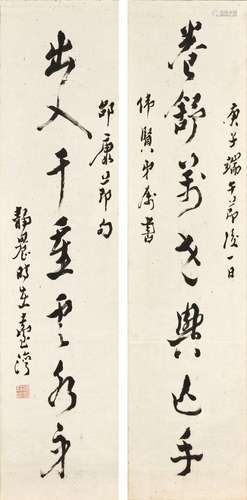 庚子端午節後一日
卷舒萬世興亡手
偉賢弟屬書
邵康節句
出入千重雲水身
靜農時在臺灣